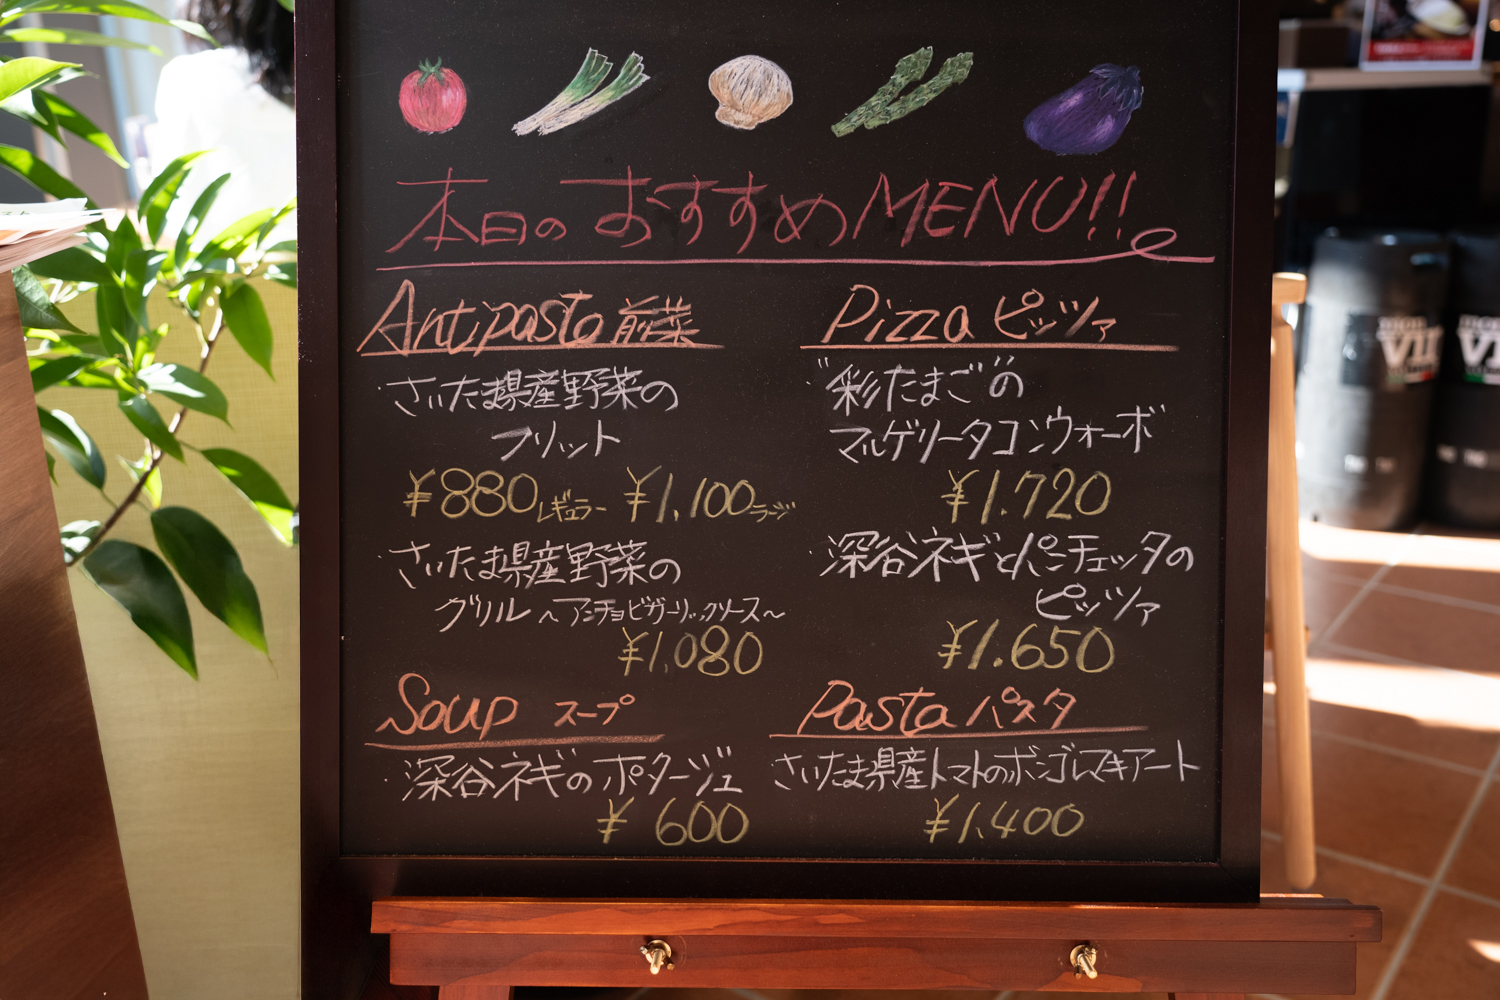 本日のおすすめMENU!!
Antipasto 前菜
・さいたま県産野菜の
フリット
¥880レギュラー ¥1,100ラージ
・さいたま県産野菜の
グリル ～アンチョビガーリックソース～
¥1,080
Soup スープ
・深谷ネギのポタージュ
¥600
Pizza ピッツァ
・"彩たまご"の
マルゲリータコンウォーボ
¥1.720
・深谷ネギとパンチェッタの
ピッツァ
¥1.650
Pasta パスタ
さいたま県産トマトのボンゴレマキアート
¥1.400
VII